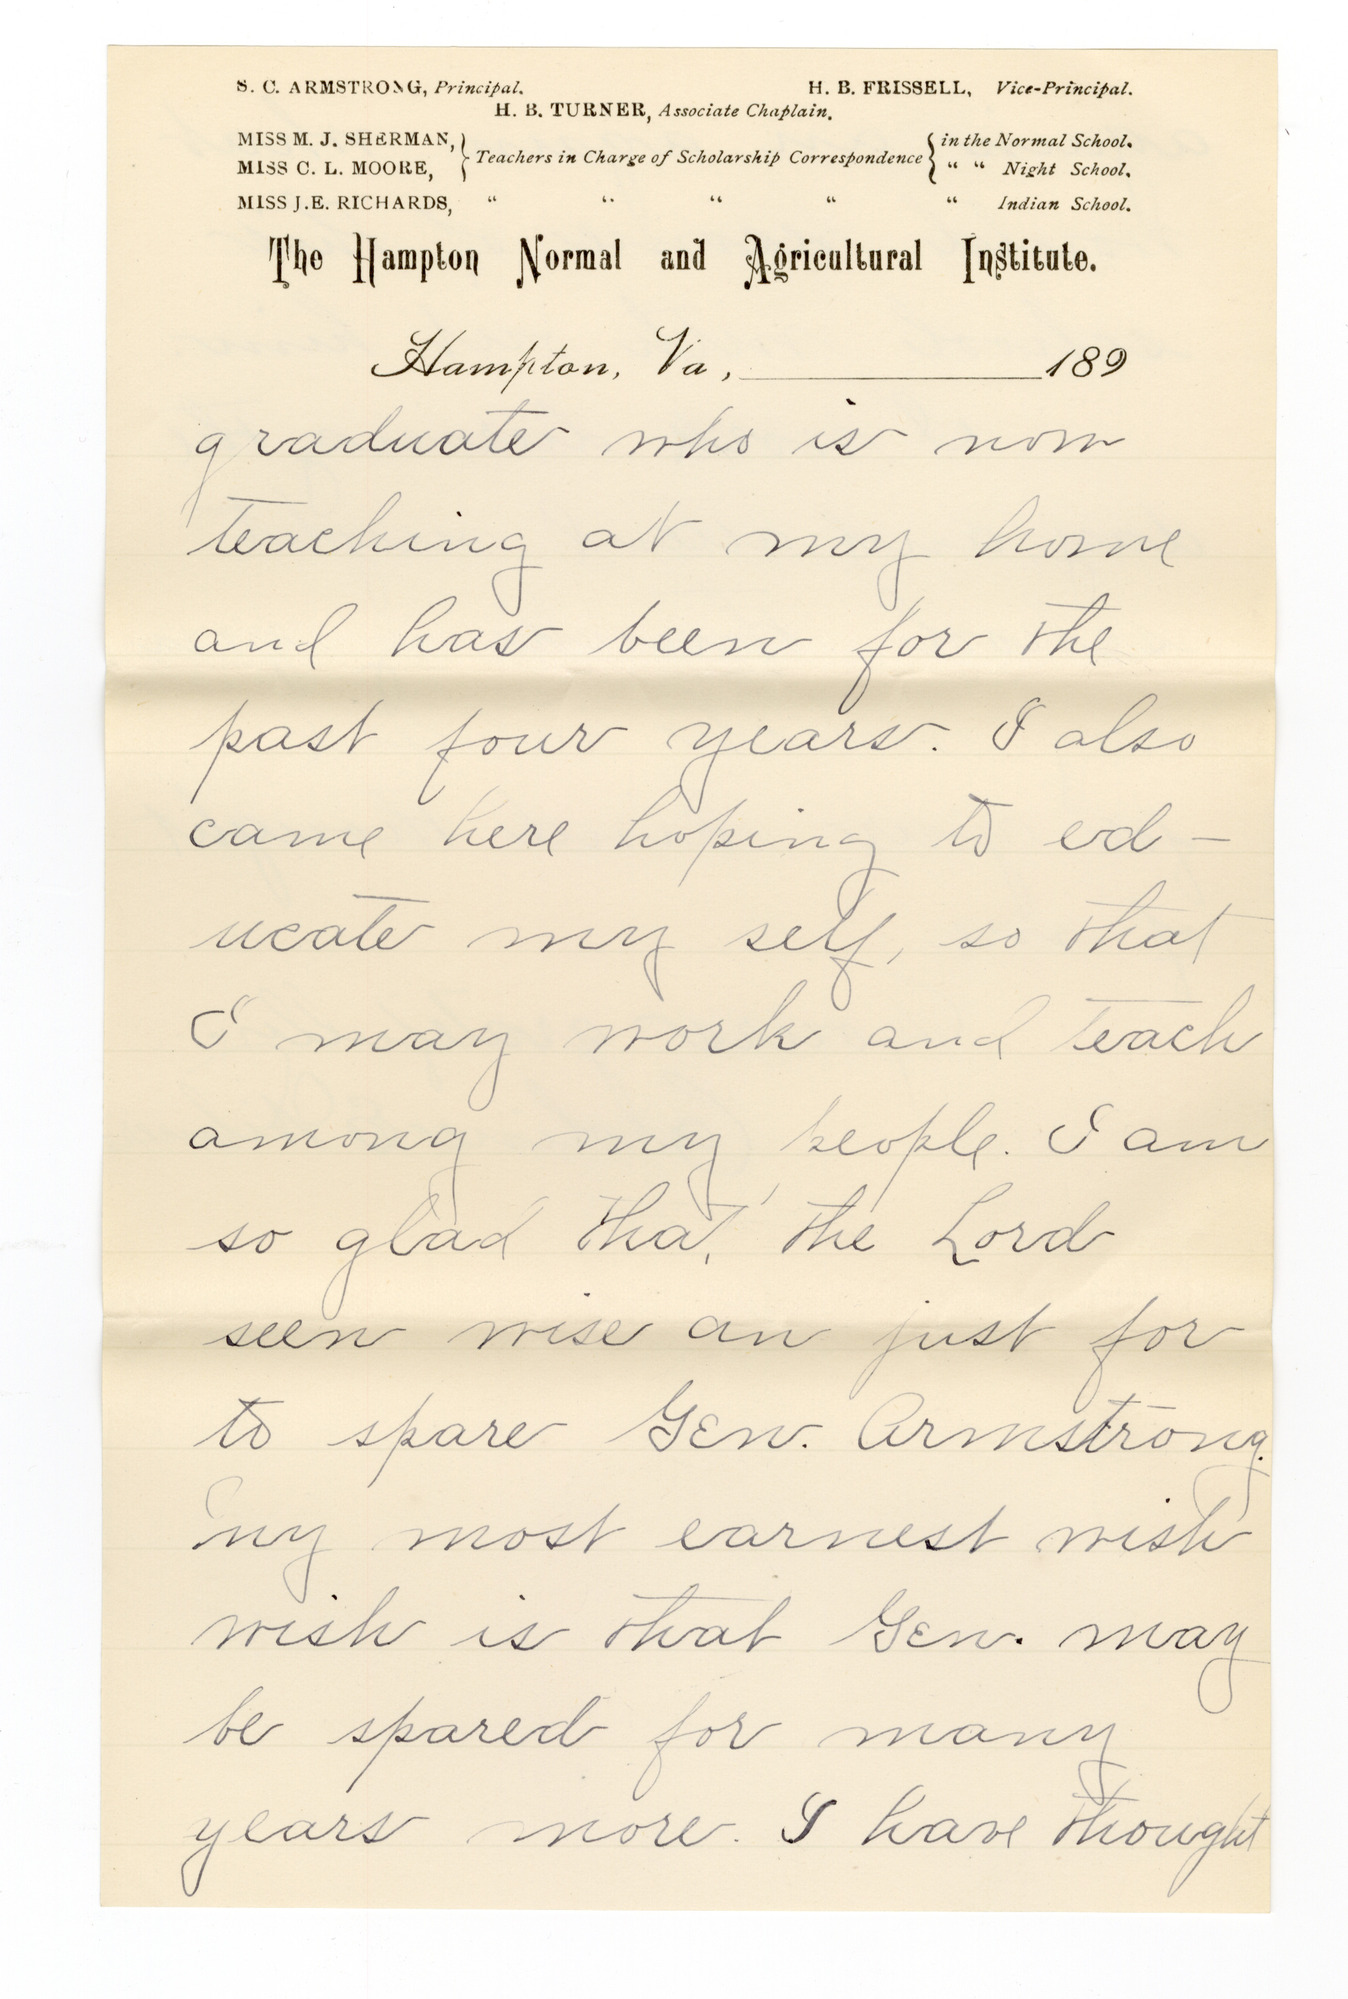 S. C. ARMSTRONG, Principal. H. B. FRISSELL, Vice-Principal.
H. B. TURNER, Associate Chaplain.
MISS M. J. SHERMAN, } Teachers in Charge of Scholarship Correspondence { in the Normal School.
MISS C. L. MOORE, } { " " Night School.
MISS J. E. RICHARDS, " " " " " Indian School.
The Hampton Normal and Agricultural Institute.
Hampton, Va., 189
graduate who is now
teaching at my home
and has been for the
past four years. I also
came here hoping to ed-
ucate my self, so that
I may work and teach
among my people. I am
so glad that the Lord
seen wise an just for
to spare Gen. Armstrong.
my most earnest wish
wish is that Gen. may
be spared for many
years more. I have thought